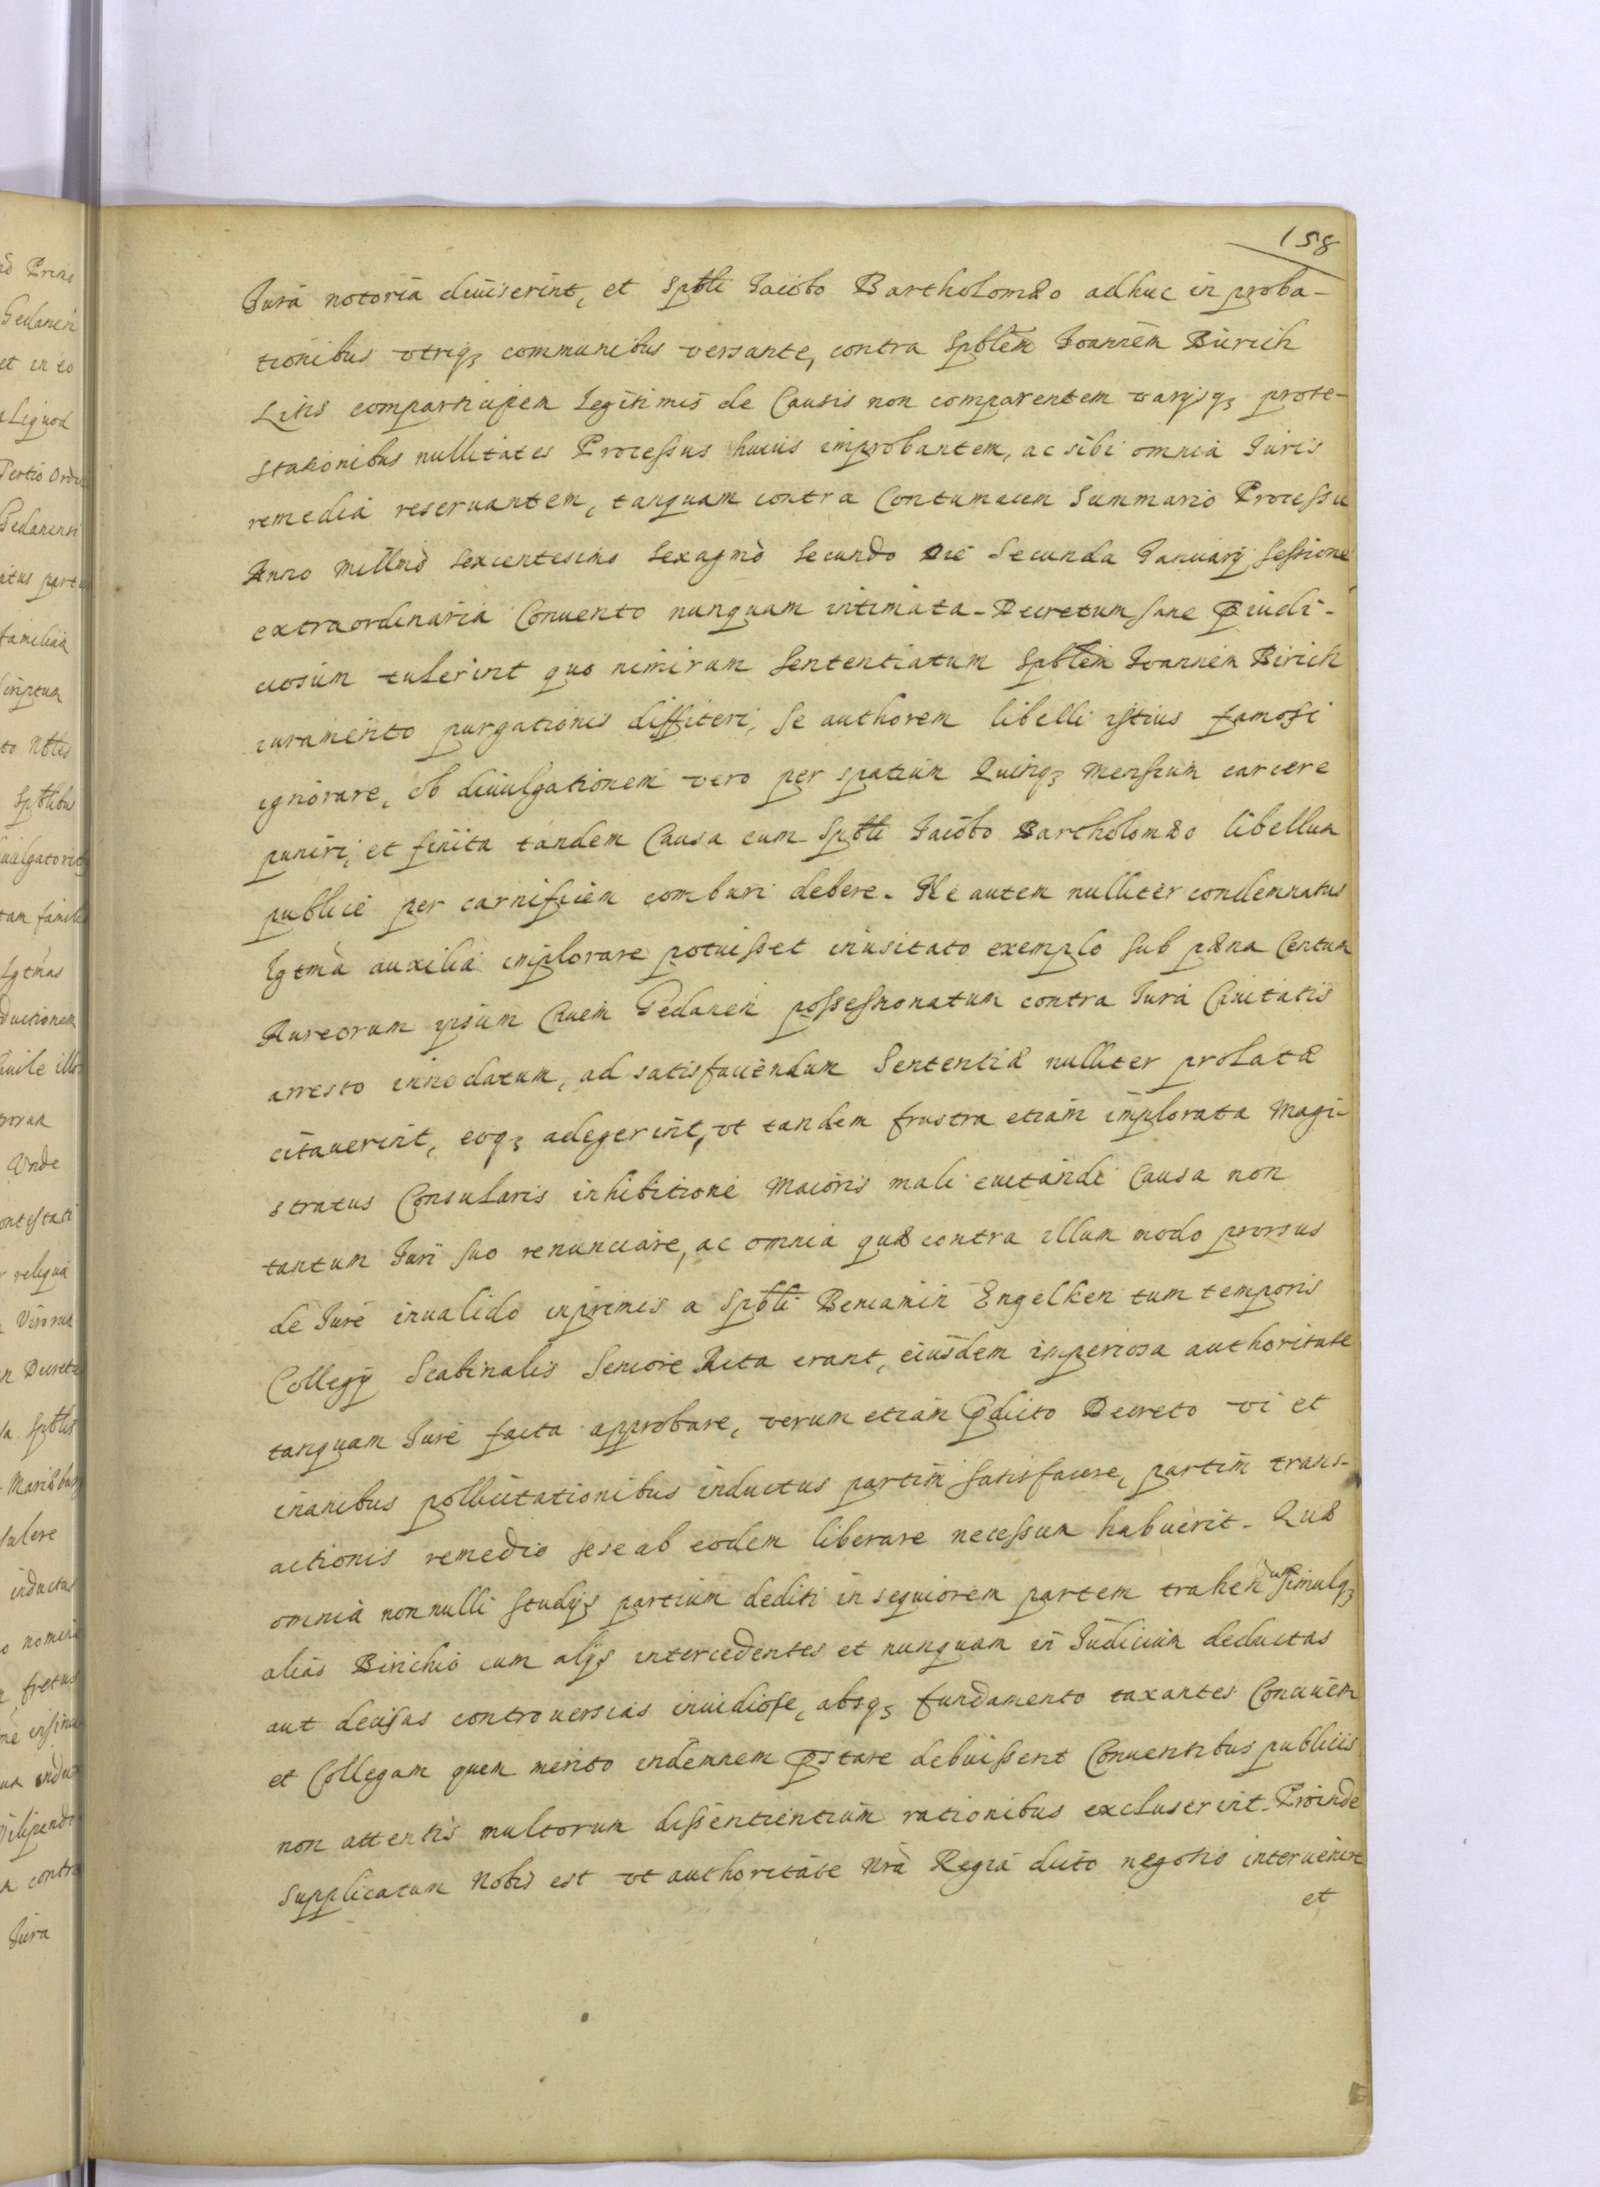 158
Jura notoria diuiserint, et Spbli Jacobo Bartholomæo adhuc in proba-
tionibus vtriq3 communibus versante, contra Spblem Joannem Birich
Litis comparticipem legitimis de Causis non comparentem varijsq3 prote-
stationibus nullitates Processus huius improbantem, ac sibi omnia Juris
remedia reseruantem, tanquam contra Contumacem Summario Processu
Anno Millmo Sexcentesimo Sexagmo Secundo Die Secunda January Sessione
extraordinaria Conuento nunquam intimata. Decretum sane piudi-
ciosum tulerint quo nimirum Sententiatum Spblem Joannem Birich
iuramento purgationis diffiteri, se authorem libelli istius famosi
ignorare, Ob diuulgationem vero per spatium Quinq3 Mensium carcere
puniri, et finita tandem Causa cum Spbli Jacobo Bartholomæo libellum
publice per carnificem comburi debere. Ne autem nulliter condemnatus
lgtma auxilia implorare potuisset inusitato exemplo sub pæna Centum
Aureorum ipsum Ciuem Gedanen possessionatum contra Jura Ciuitatis
arresto innodatum, ad satisfaciendum Sententiæ nulliter prolatæ
citauerint, eoq3 adegerint, vt tandem frustra etiam implorata Magi-
stratus Consularis inhibitione Maioris mali euitandi Causa non
tantum Juri suo renunciare, ac omnia quæ contra illum modo prorsus
de Jure inualido inprimis a Spbli Beniamin Engelken tum temporis
Collegy Scabinalis Seniore Acta erant, eiusdem imperiosa authoritate
tanquam Jure facta approbare, verum etiam pdicto Decreto vi et
inanibus pollicitationibus inductus partim satisfacere, partim trans-
actionis remedio sese ab eodem liberare necessum habuerit. Quæ
omnia nonnulli Studijs partium dediti in sequiorem partem trahen simulq3
alias Birichio cum alijs intercedentes et nunquam in Judicium deductas
aut decisas controuersias inuidiose, absq3 fundamento taxantes Conciuem
et Collegam quem merito indemnem pstare debuissent Conuentibus publicis
non attentis multorum dissentientium rationibus excluserint. Proinde
supplicatum Nobis est vt authoritate Nra Regia dicto negotio interuenire
et